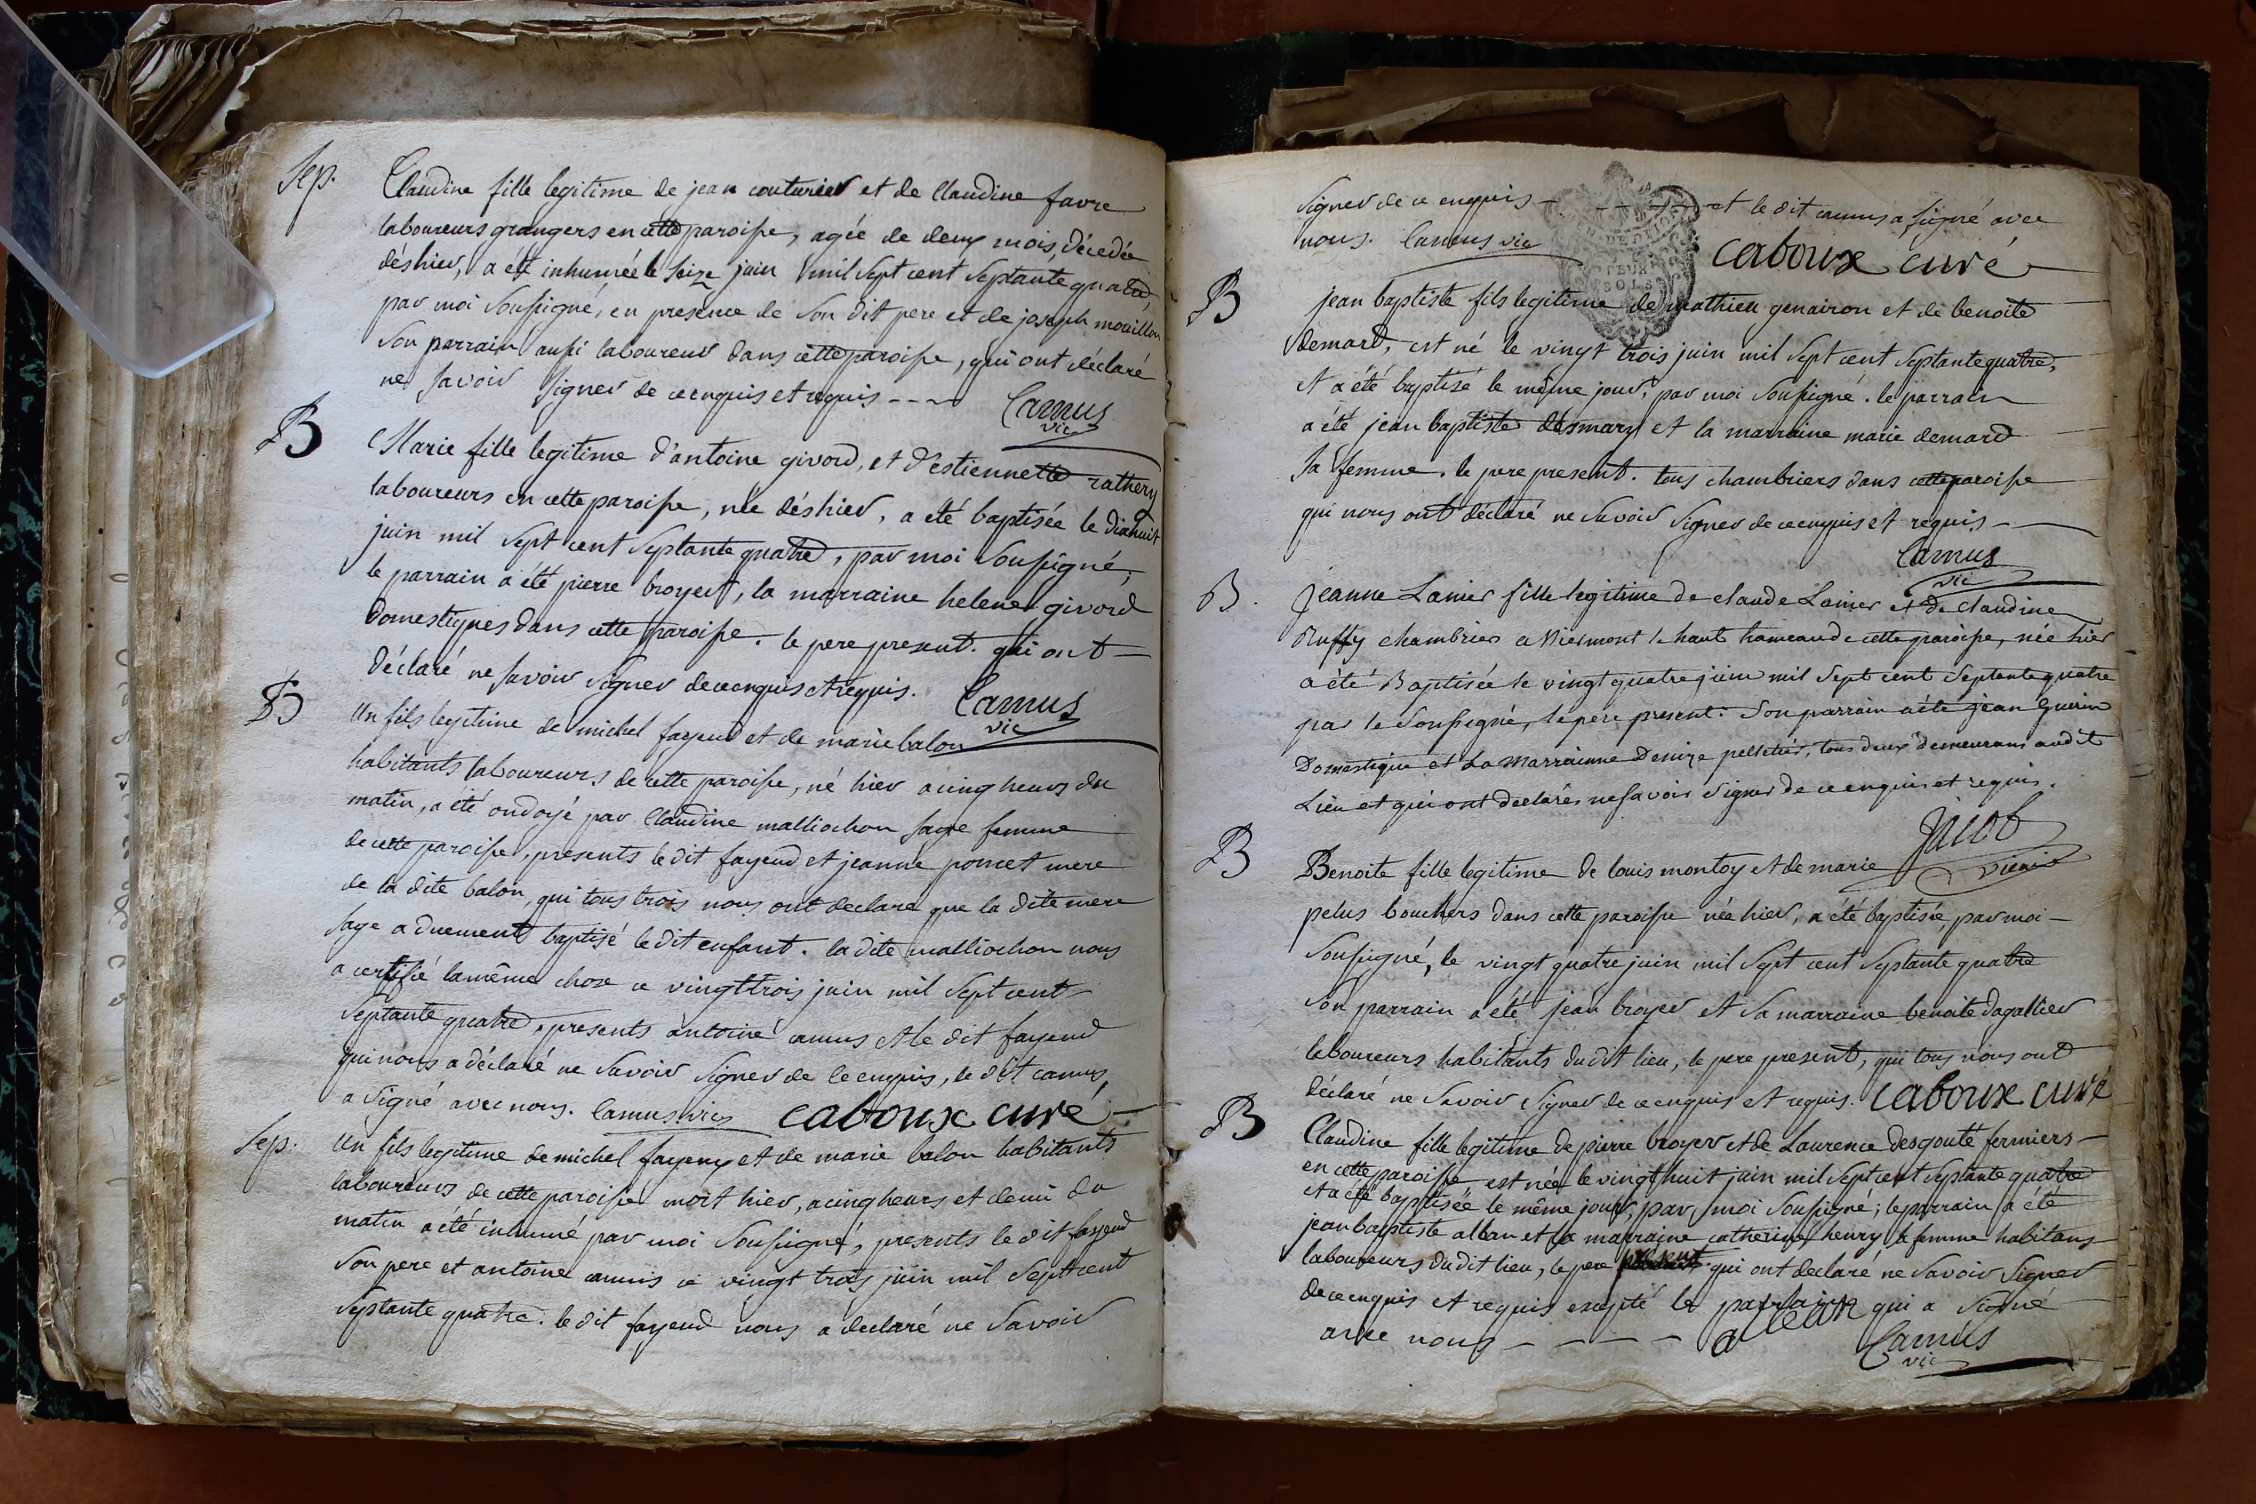 Sep. Claudine fille legitime de jean couturier et de Claudine favre
laboureurs grangers en cette paroisse, agée de deux mois, décedée
dès hier, a été inhumée le seize juin mil sept cent septante quatre,
par moi soussigné, en presence de son dit pere et de joseph mouillon
son parrain aussi laboureur dans cette paroisse, qui ont déclaré
ne savoir signer de ce enquis et requis ---- Camus
vic
B Marie fille legitime d'antoine givord, et d'estiennette rathery
laboureurs en cette paroisse, née dès hier, a eté baptisée le dixhuit
juin mil sept cent septante quatre, par moi soussigné,
le parrain a été pierre broyer, la marraine helene givord
domestiques dans cette paroisse. le pere present. qui ont
déclaré ne savoir signer de ce enquis et requis. Camus
vic
B Un fils legitime de michel fayend et de marie balon
habitants laboureurs de cette paroisse, né hier a cinq heurs du
matin, a été ondoyé par Claudine malliochon sage femme
de cette paroisse, presents le dit fayend et jeanne poncet mere
de la dite balon, qui tous trois nous ont declaré que la dite mere
sage a duement baptisé le dit enfant. la dite malliochon nous
a certifié la même chose ce vingt trois juin mil sept cent
septante quatre, presents antoine camus et le dit fayend
qui nous a déclaré ne savoir signer de ce enquis, le dit camus
a signé avec nous. Camus vic caboux curé
Sep: Un fils legitime de michel fayend et de marie balon habitants
laboureurs de cette paroisse mort hier, a cinq heurs et demi du
matin a été inhumé par moi soussigné, presents le dit fayend
son pere et antoine camus ce vingt trois juin mil sept cent
septante quatre. le dit fayend nous a declaré ne savoir
signer de ce enquis - - - - et le dit camus a signé avec
nous. Camus vic caboux curé
B jean baptiste fils legitime de mathieu genairon et de benoite
demard, est né le vingt trois juin mil sept cent septante quatre,
et a été baptisé le même jour, par moi soussigné. le parrain
a été jean baptiste desmary et la marraine marie demard
sa femme. le pere present. tous chambriers dans cette paroisse
qui nous ont déclaré ne savoir signer de ce enquis et requis - -
Camus
vic
B. Jeanne Lanier fille legitime de claude Lanier et de claudine
Ruffy chambrier a le haut hameau de cette paroisse, née hier
a été Baptisée le vingt quatre juin mil sept cent septante quatre
par le soussigné, le pere present. Son parrain a été jean guerin
Domestique et La Marrainne Denize pelletier, tous deux demeurans audit
Lieu et qui ont declarés ne savoir signer de ce enquis et requis.
Jacob
vicaire
B Benoite fille legitime de louis montoy et de marie
pelus bouchers dans cette paroisse née hier, a été baptisée, par moi -
soussigné, le vingt quatre juin mil sept cent septante quatre
son parrain a été jean broyer et sa marraine benoite dagallier
laboureurs habitants du dit lieu, le pere present, qui tous nous ont
déclaré ne savoir signer de ce enquis et requis. caboux curé
B Claudine fille legitime de pierre broyer et de Laurence desgoute fermiers -
en cette paroisse est née le vingt huit juin mil sept cent septante quatre
et a été baptisée le même jour, par moi soussigné; le parrain a été
jean baptiste alban et la marraine catherine henry sa femme habitans
laboureurs du dit lieu, le pere qui ont declaré ne savoir signer
de ce enquis et requis excepté le parrain qui a signé
avec nous - - - - Camus
vic